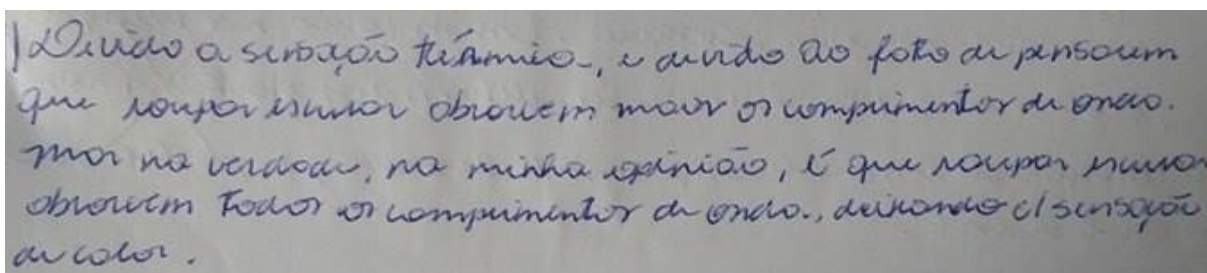 Devido a sensação térmica, e devido ao fato de pensarem
que roupas escuras absorvem mais os comprimentos de onda.
Mas na verdade, na minha opinião, é que roupas escuras
absorvem todos os comprimentos de onda, deixando c/ sensação
de calor.